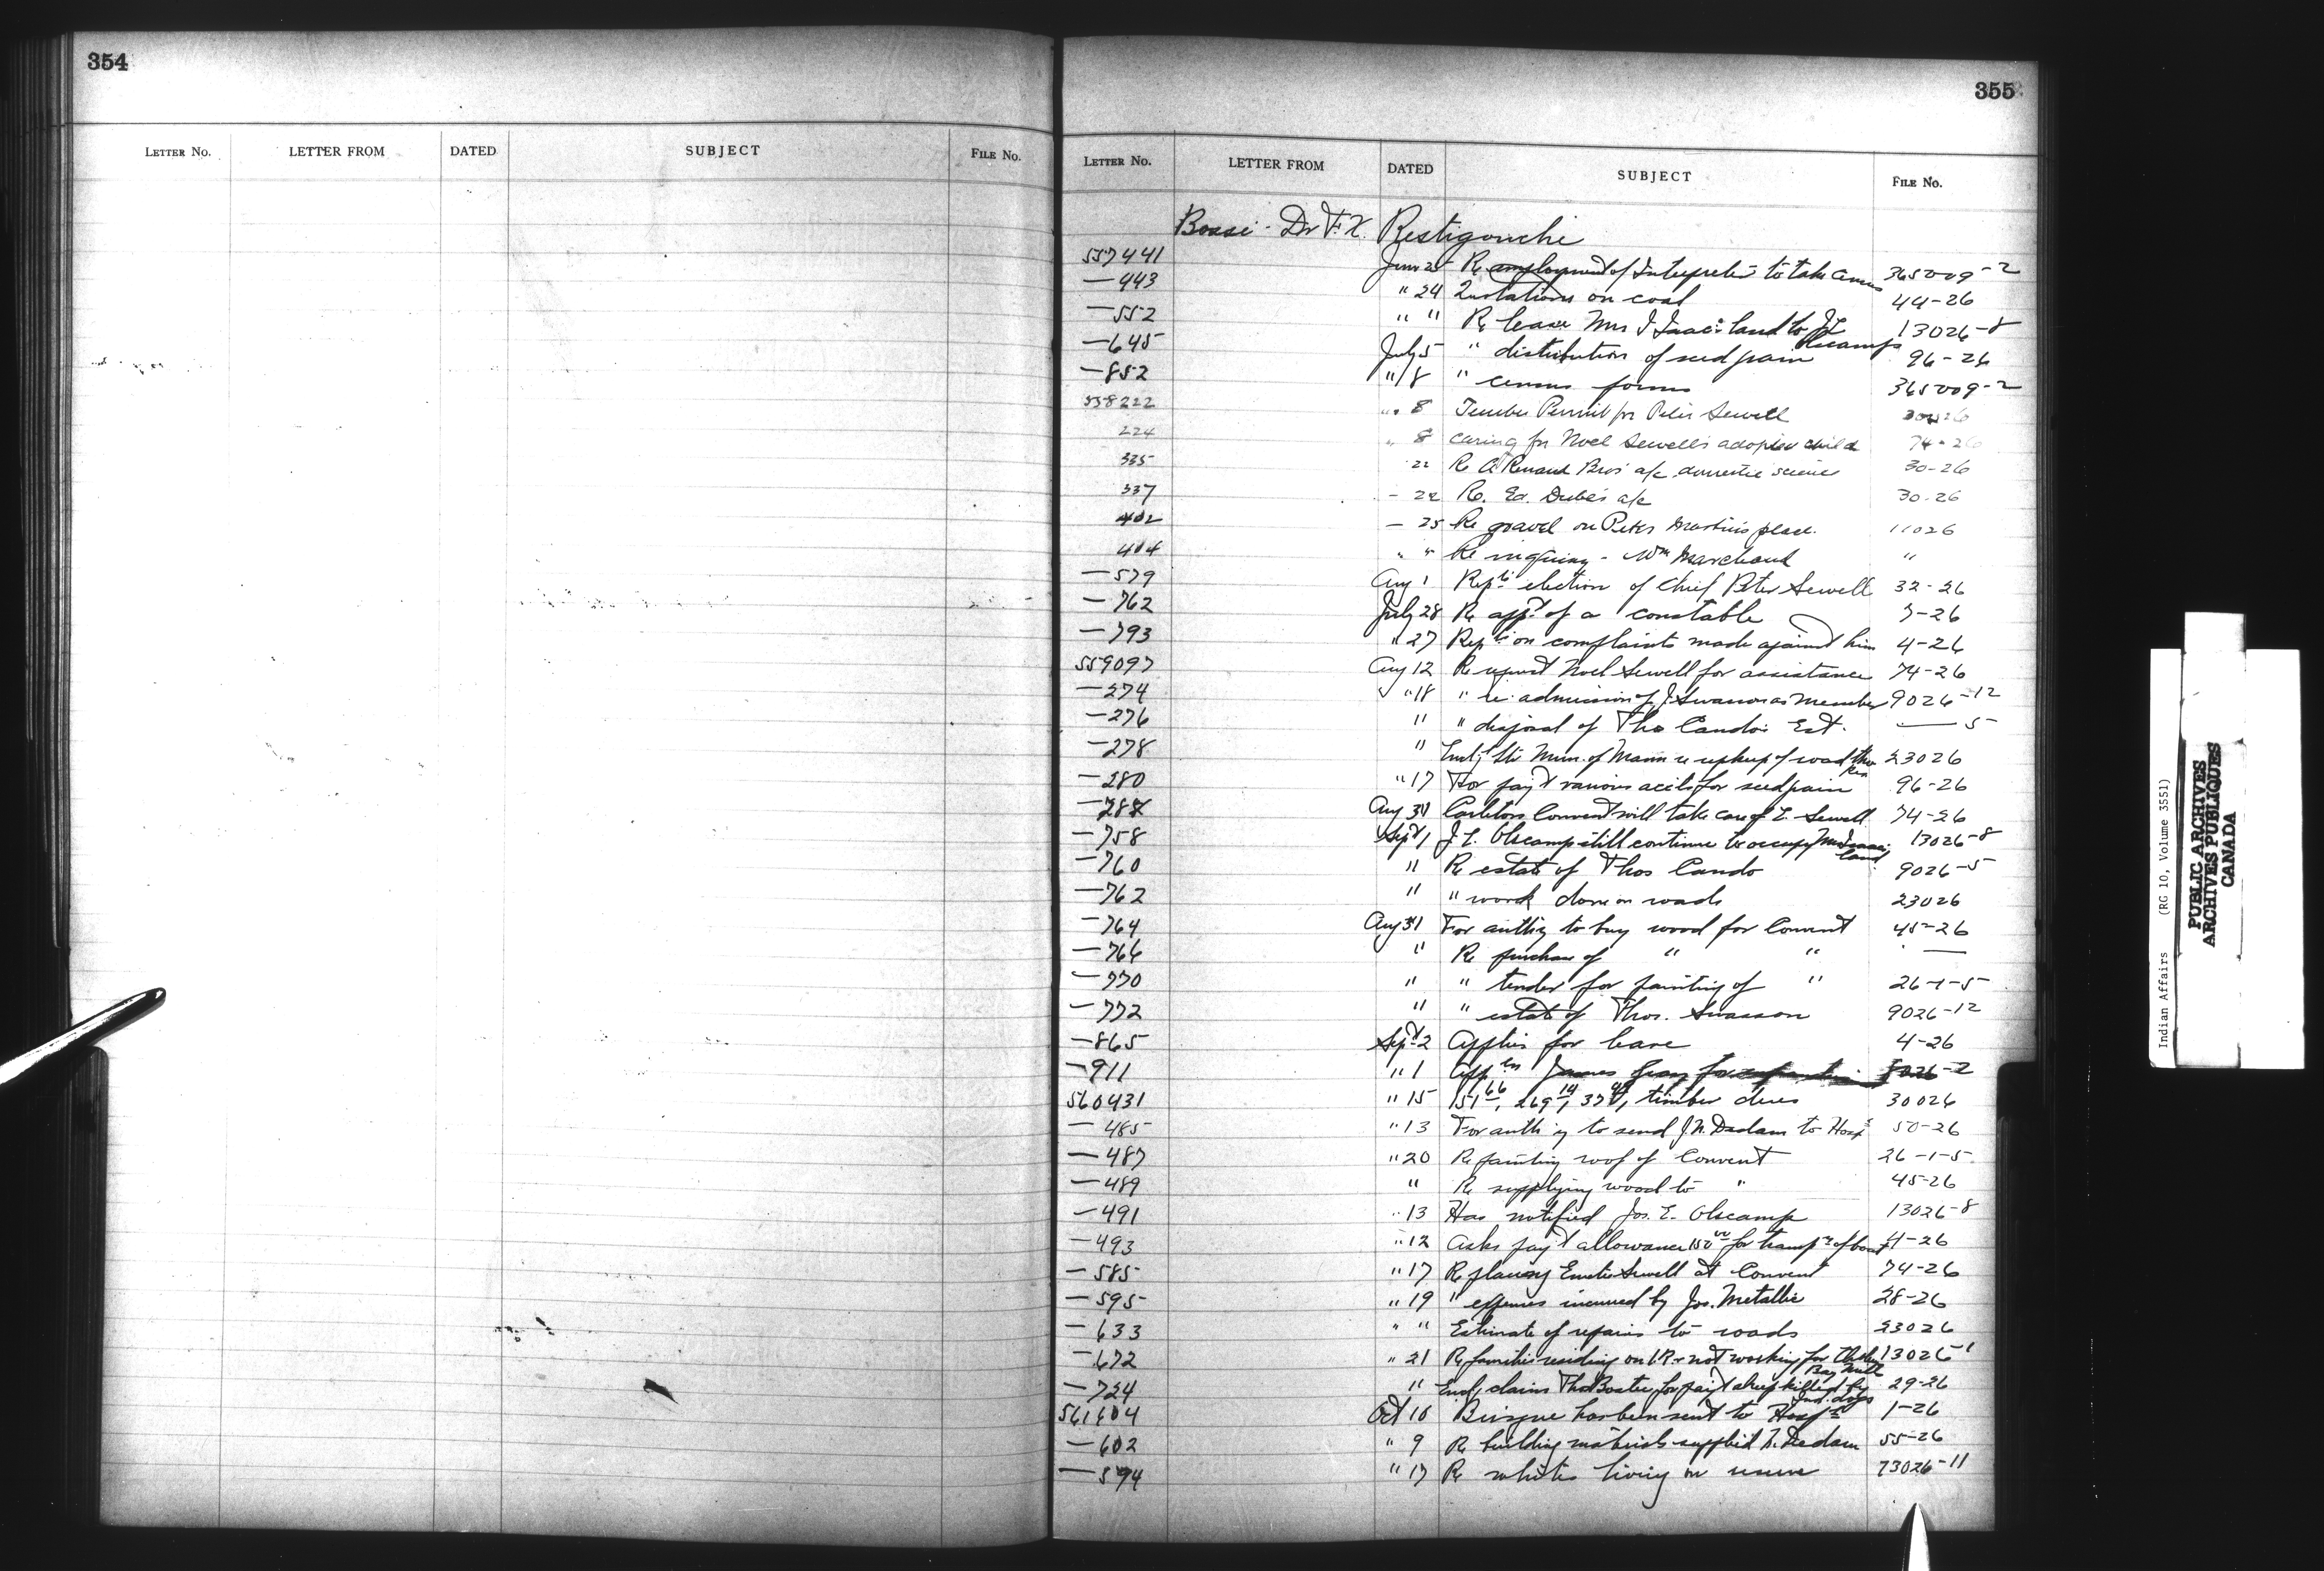 354
LETTER No. LETTER FROM DATED SUBJECT FILE No.
355
LETTER No. LETTER FROM DATED SUBJECT FILE No.
Bossi - Dr F. X. Restigouche
557441 June 25 Re employment of Interpreter to take census 365009-2
—443 " 24 Quotations on coal 44-26
—552 " " Re lease Mrs J Isaac's land to J E Olscamps 13026-8
—645 July 5 " distribution of seed grain 96-26
—852 " 8 " census forms 365009-2
558222 " 8 Timber Permit for Peter Sewell 30026
224 " 8 caring for Noel Sewell's adopted child 74-26
335 22 Re A Renaud Bros' a/c domestic science 30-26
337 - 22 Re. Ed. Dube's a/c 30-26
402 — 25 Re gravel on Peter Martin's place. 11026
404 " " Re inquiry - Wm Marchand "
—579 Aug 1 Repts election of Chief Peter Sewell 32-26
—762 July 28 Re appt of a constable 7-26
—793 " 27 Repts on complaints made against him 4-26
559097 Aug 12 Re request Noel Sewell for assistance 74-26
—274 " 18 " re admission of J. Swasson as member 9026-12
—276 " " disposal of Thos Condo's Est. — 5
—278 " Encl. ltr Mun. of Mann re upkeep of road thro Res 23026
—280 " 17 For pay't various accts for seed grain 96-26
—288 Aug 31 Carleton Convent will take care of E. Sewell 74-26
—758 Sept 1 J. E. Olscamp still continue to occupy Mrs Isaac's land 13026-8
—760 " Re estate of Thos Condo 9026-5
—762 " " work done on roads 23026
—764 Aug 31 For auth'y to buy wood for Convent 45-26
—766 " Re purchase of " " —
—770 " " tender for painting of " 26-1-5
—772 " " estate of Thos. Swasson 9026-12
—865 Sept 2 Applies for leave 4-26
—911 " 1 James Gray for 2
560431 " 15 151 66, 269 14, 37, timber dues 30026
—485 " 13 For auth'y to send J. N. Dedam to Hosp'l 50-26
—487 " 20 Re painting roof of Convent 26-1-5
—489 " Re supplying wood to " 45-26
—491 " 13 Has notified Jos. E. Olscamp 13026-8
—493 " 12 Asks pay't allowance 150 00 for transp'n of boat 4-26
—585 " 17 Re placing Sewell at Convent 74-26
—595 " 19 " expenses incurred by Jos. Metallic 28-26
—633 " " Estimate of repairs to roads 23026
—672 " 21 Re families residing on I.R. & not working for Bay Mill 13026-1
—724 " Encl. claim Thos for pay't sheep killed by Ind. dogs 29-26
561604 Oct 10 has been sent to Hosp'l 1-26
—602 " 9 Re building materials supplied N. Dedam 55-26
—594 " 17 Re whites living on reserve 73026-11
Indian Affairs (RG 10, Volume 3551)
PUBLIC ARCHIVES
ARCHIVES PUBLIQUES
CANADA